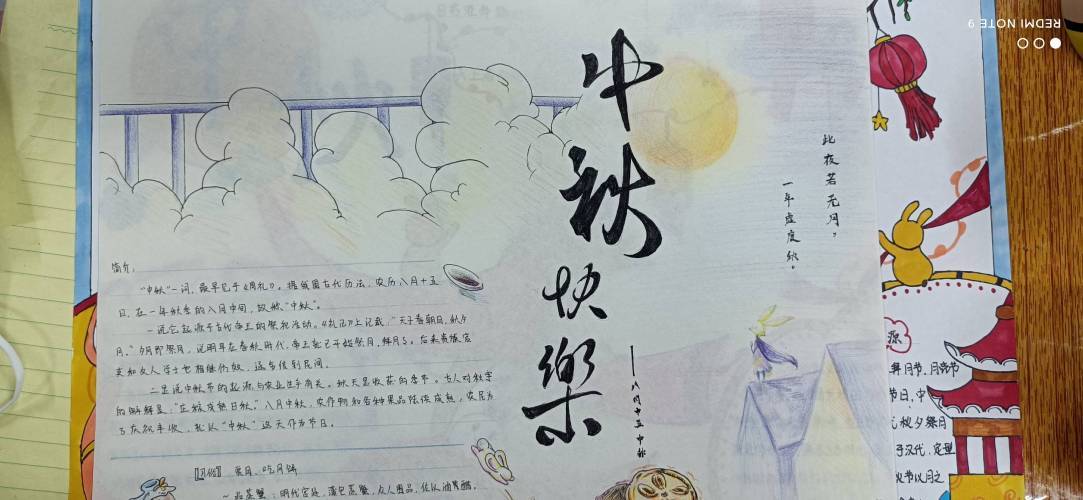 中秋快樂
——八月十五中秋
此夜若无月，
一年虚度秋。
简介：
"中秋"一词，最早见于《周礼》。根据我国古代历法，农历八月十五
日，在一年秋季的八月中旬，故称"中秋"。
一说它起源于古代帝王的祭祀活动。《礼记》上记载："天子春朝日，秋夕
月。"夕月即祭月，说明早在春秋时代，帝王就已开始祭月、拜月了。后来贵族官
吏和文人学士也相继仿效，逐步传到民间。
二是说中秋节的起源与农业生产有关。秋天是收获的季节。古人对秋字
的解释是："庄稼成熟曰秋。"八月中秋，农作物和各种果品陆续成熟，农民为
了庆祝丰收，就以"中秋"这天作为节日。
【习俗】 赏月、吃月饼
源
拜月节、月亮节
节日，中
秋夕祭月
于汉代，定型
秋节以月之
REDMI NOTE 9